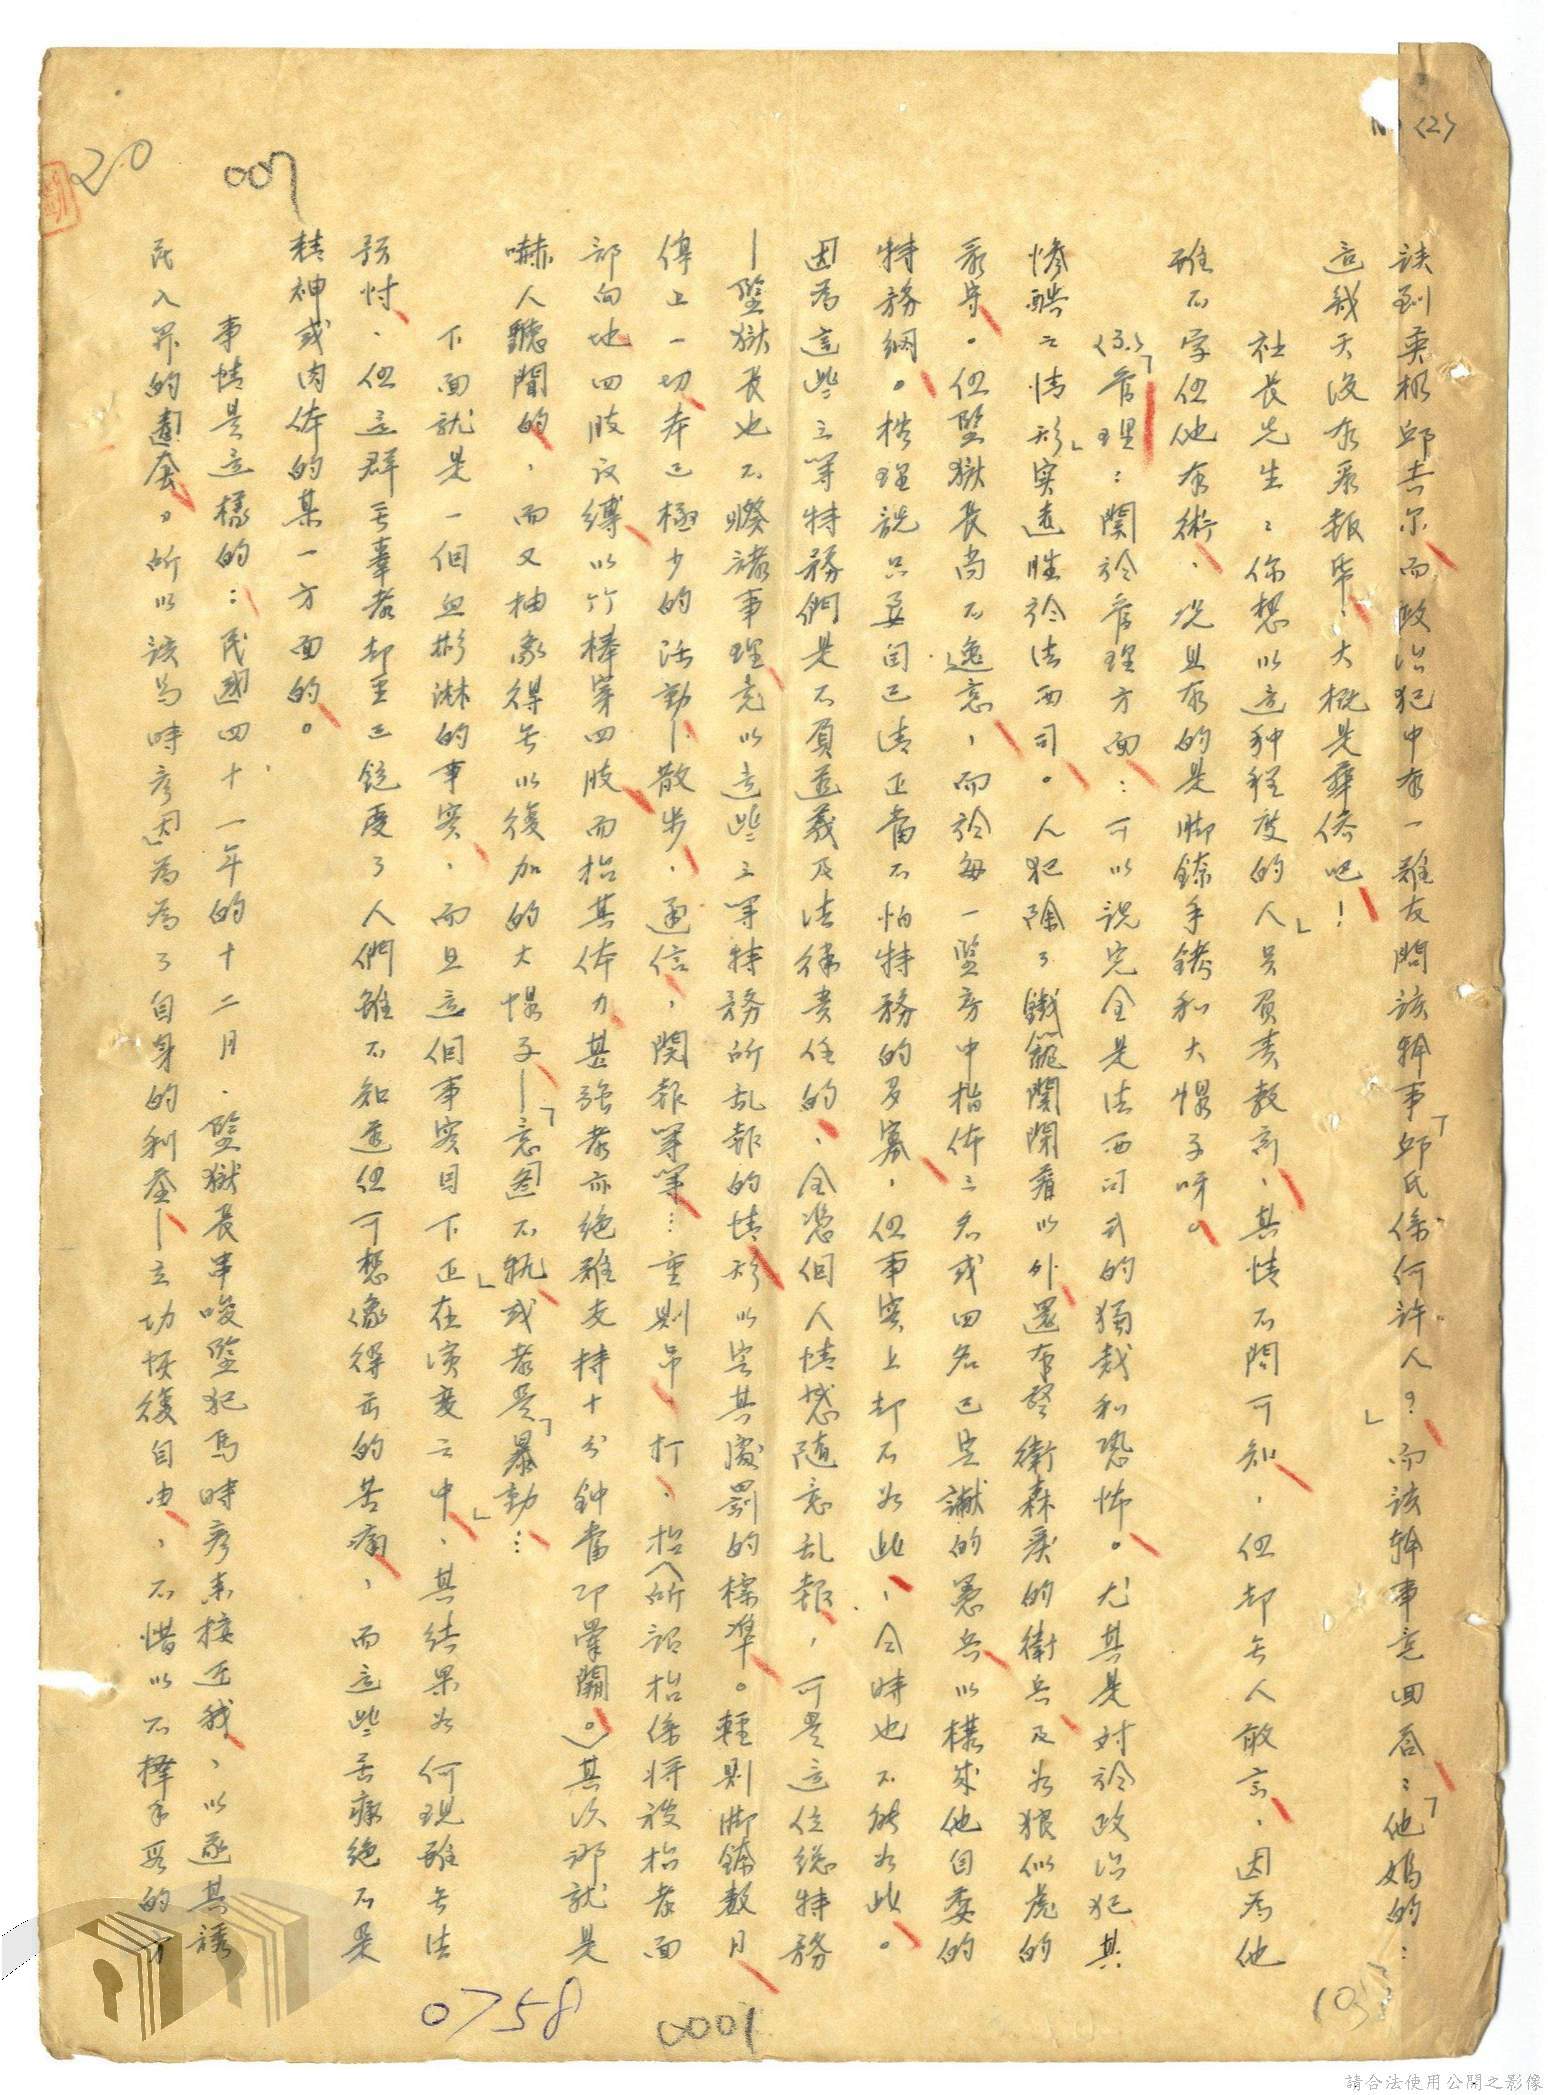 談到英相邱吉尔而政治犯中有一難友問該幹事「邱氏係何許人？」而該幹事竟回答：「他媽的：
這幾天沒有看報帋、大概是華僑吧！」
社長先生：你想以這种程度的人員負責教育、其情不問可知、但却無人敢言、因為他
雖不学但他有術、況且有的是脚鐐手銬和大棍子呀。
「管理：関於管理方面：可以說完全是法西司式的獨裁和恐怖。尤其是对於政治犯其
慘酷之情形」実遠胜於法西司。人犯除了鐵籠関閉着以外還有警衛森嚴的衛兵及如狼似虎的
看守。但監獄長尚不逸意，而於每一監房中指佈三名或四名已定讞的愚兵以構成他自委的
特務網。按理說只要自己清正當不怕特務的多寡，但事实上却不如此，今時也不能如此。
因為這些三等特務們是不負道義及法律責任的、全憑個人情感随意乱報，可是這位總特務
—監獄長也不瞭諸事理竟以這些三等特務所乱報的情形以定其處罰的標準。輕則脚鐐数月
停止一切本已極少的活動—散步、通信，閱報等等…重則吊、打、抬（所謂抬係將被抬者面
部向地四肢被縛以竹棒穿四肢而抬其体力甚強者亦絕難支持十分鐘當即暈闕。）其次那就是
嚇人聽聞的，而又抽象得無以復加的大帽子—「意图不軌」或者是「暴動…
下面就是一個血淋淋的事实，而且這個事实目下正在演变之中」、其結果如何現雖無法
預忖、但這群無辜者却至已飽受了人們雖不知道但可想像得出的苦痛，而這些苦痛絕不是
精神或肉体的某一方面的。
事情是這樣的：民國四十一年的十二月、監獄長串唆監犯馬時彥來接近我，以遂其誘
我入罪的圈套。所以該馬時彥因為為了自身的利益—立功恢復自由，不惜以不擇手段的方
20
007
0758
0001
請合法使用公開之影像